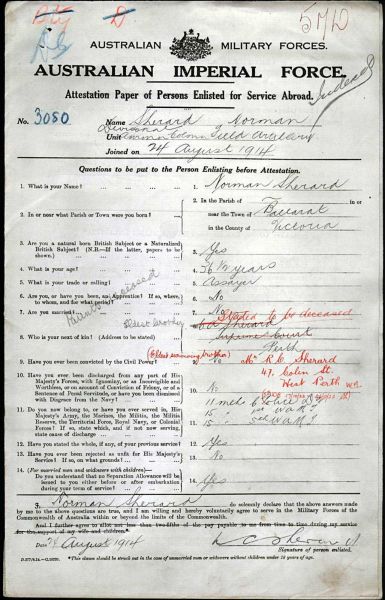 5710
Indexed
AUSTRALIAN MILITARY FORCES.
AUSTRALIAN IMPERIAL FORCE.
Attestation Paper of Persons Enlisted for Service Abroad.
No. 3080 Name Sherard Norman
Divisional
Unit Ammn Column Field Artillery
Joined on 24 August 1914
Questions to be put to the Person Enlisting before Attestation.
1. What is your Name? 1. Norman Sherard
2. In or near what Parish or Town were you born? 2. In the Parish of in or
near the Town of Ballarat
in the County of Victoria
3. Are you a natural born British Subject or a Naturalized
British Subject? (N.B.—If the latter, papers to be
shown.) 3. Yes
4. What is your age? 4. years
5. What is your trade or calling? 5. Assayer
6. Are you, or have you been, an Apprentice? If so, where,
to whom, and for what period? 6. No
7. Are you married? 7. No Stated to be deceased
8. Who is your next of kin? (Address to be stated) Eldest brother 8. Sherard
Supreme Court
Perth
(Eldest surviving brother) Mr R.C. Sherard
47. Colin St.
West Perth W.A.
9. Have you ever been convicted by the Civil Power? 9. No
10. Have you ever been discharged from any part of His
Majesty's Forces, with Ignominy, or as Incorrigible and
Worthless, or on account of Conviction of Felony, or of a
Sentence of Penal Servitude, or have you been dismissed
with Disgrace from the Navy? 10. No
11. Do you now belong to, or have you ever served in, His
Majesty's Army, the Marines, the Militia, the Militia
Reserve, the Territorial Force, Royal Navy, or Colonial
Forces? If so, state which, and if not now serving,
state cause of discharge 11.
12. Have you stated the whole, if any, of your previous service? 12. Yes
13. Have you ever been rejected as unfit for His Majesty's
Service? If so, on what grounds? 13. No
14. (For married men and widowers with children)—
Do you understand that no Separation Allowance will be
issued to you either before or after embarkation
during your term of service? 14. Yes
I, Norman Sherard do solemnly declare that the above answers made
by me to the above questions are true, and I am willing and hereby voluntarily agree to serve in the Military Forces of the
Commonwealth of Australia within or beyond the limits of the Commonwealth.
And I further agree to allot not less than two-fifths of the pay payable to me from time to time during my service
for the support of my wife and children.*
Date 24 August 1914
Signature of person enlisted.
*This clause should be struck out in the case of unmarried men or widowers without children under 18 years of age.